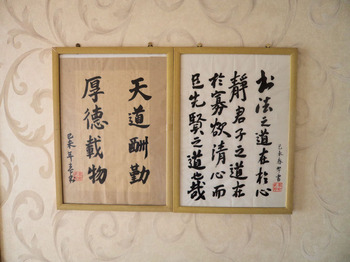 书法之道在於心
靜君子之道在
於寡欲清心而
已先賢之道也哉
天道酬勤
厚德載物